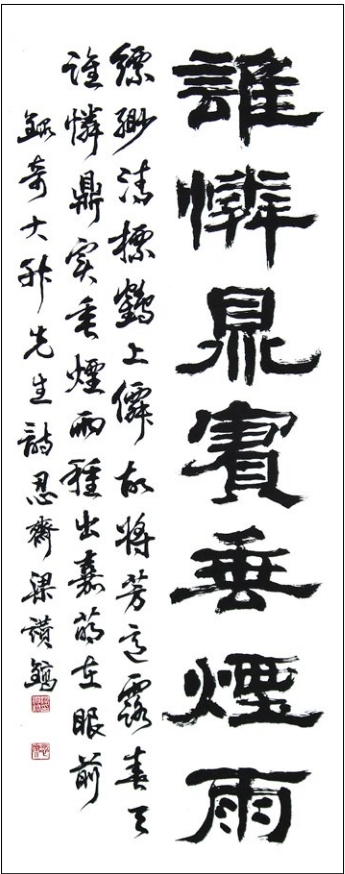 誰憐鼎實垂煙雨
縹緲清標鶴上僊故將芳意露春天
誰憐鼎实垂煙雨種出嘉在眼前
錄奇大升先生詩忍齋梁讚鎬